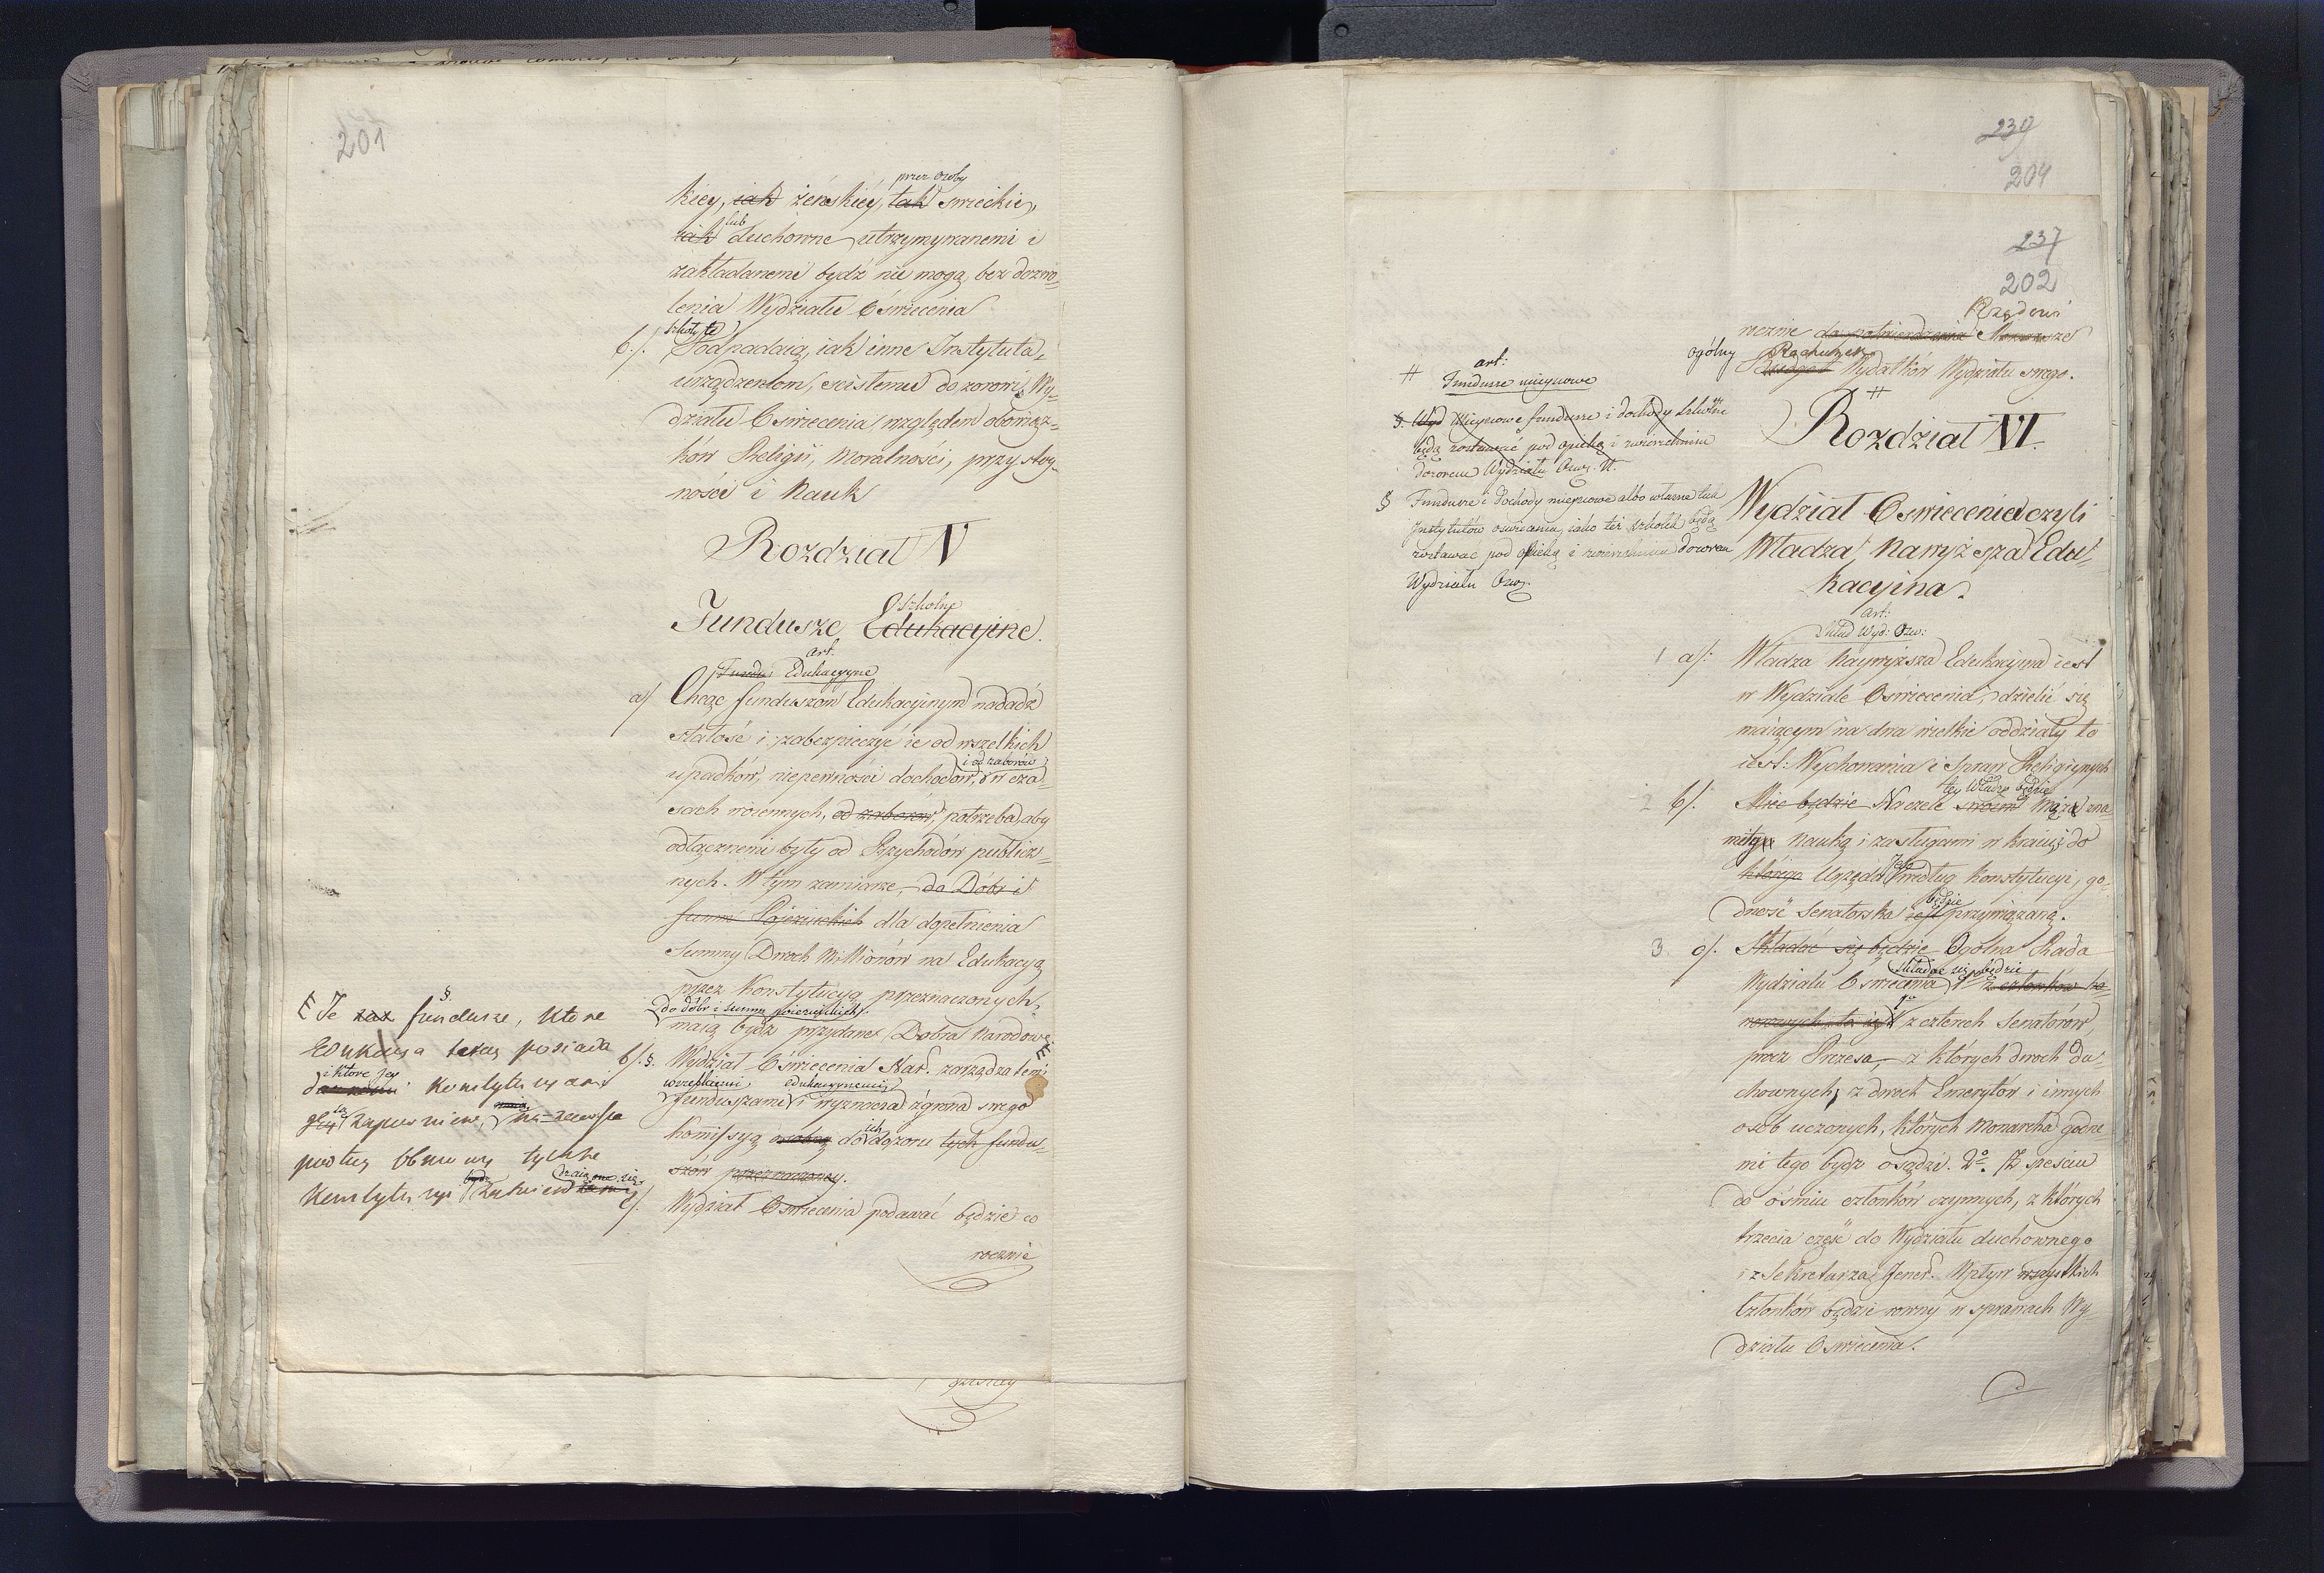 201
przez osoby
kiey, iak żeńskiéy, tak swieckie,
lub
iak duchowne utrzymywanemi i
zakładanemi bydź nie mogą, bez dozwo=
lenia Wydziału Oświecenia
szkoły te
b/. Podpadaią, iak inne Instytuta,
urządzeniom, scisłemu dozorowi Wy=
działu Oswiecenia względem obowiąz=
ków Religii, Moralności, przystoy=
ności i Nauk
Rozdział V
Szkolne
Fundusze Edukacyine.
art.
Fundu: Edukacyyne
a/ Chcąc funduszom Edukacyinym nadadź
stałość i zabezpieczyć ie od wszelkich
i od zaborów
upadków, niepewności dochodów, w cza=
sach woiennych, od zaborów, potrzeba, aby
odłącznemi były od Przychodów publicz=
nych. W tym zamiarze, do Dóbr i
summ Pojezuickich dla dopełnienia
Summy Dwoch Millionów na Edukacyą
przez Konstytucyą przeznaczonych,
do dóbr i summ poiezuickich
maią bydź przydane Dobra Narodowe.
b/. §. Wydział Oświecenia Nar. zarządza temi
wszystkiemi edukacyynemi
funduszami i wyznacza z grona swego
ich
Kommissyą osobną do dozoru tych fundu=
szów przeznaczoney.
c/. Wydział Oswiecenia podawać będzie co
rocznie
§.
Te zaś fundusze, które
Edukacya teraz posiada
i które jey
dawnemi Konstytucyami
są zapewnione,
podług osnowy tychże
Konstytucyi
239
204
237
202
Rządowi
rocznie do potwierdzenia Monarsze
ogólny Rachunek
Budget Wydatków Wydziału swego.
#
art:
# Fundusze mieyscowe
§. Wyd Mieyscowe fundusze i dochody szkolne
będą zostawać pod opieką i zwierzchnim
dozorem Wydziału Osw. N.
§ Fundusze i dochody mieyscowe albo własne tak
Instytutów oswiecenia, iako też szkółek będą
zostawać pod opieką i zwierzchnim dozorem
Wydziału Osw.
Rozdział VI.
Wydział Oswiecenia czyli
Władza Naywyższa Edu=
kacyina.
art:
Skład Wyd: Osw:
1 a/: Władza Naywyższa Edukacyina iest
w Wydziale Oświecenia, dzielić się
maiącym na dwa wielkie oddziały to
iest: Wychowania i Spraw Religiynych
tey Władzy będzie
2 b/. Mieć będzie Na czele swoim Mąż zna=
mity nauką i zasługami w kraiu; do
Jego
którego Urzędu według Konstytucyi, go=
będzie
dność Senatorska iest przywiązana.
3. c/. Składać się będzie Ogólna Rada
składać się będzie
Wydziału Oswiecenia z członków ho=
1o
norowych, to iest z czterech Senatorów,
prócz Prezesa, z których dwoch Du=
chownych; z dwoch Emerytów i innych
osób uczonych, których Monarcha godne=
mi tego bydz osądzi. 2o. Z sześciu
do ośmiu członków czynnych, z których
trzecia część do Wydziału duchownego
i z Sekretarza Jener. Wpływ wszystkich
Członków będzie rowny w sprawach Wy=
działu Oswiecenia.